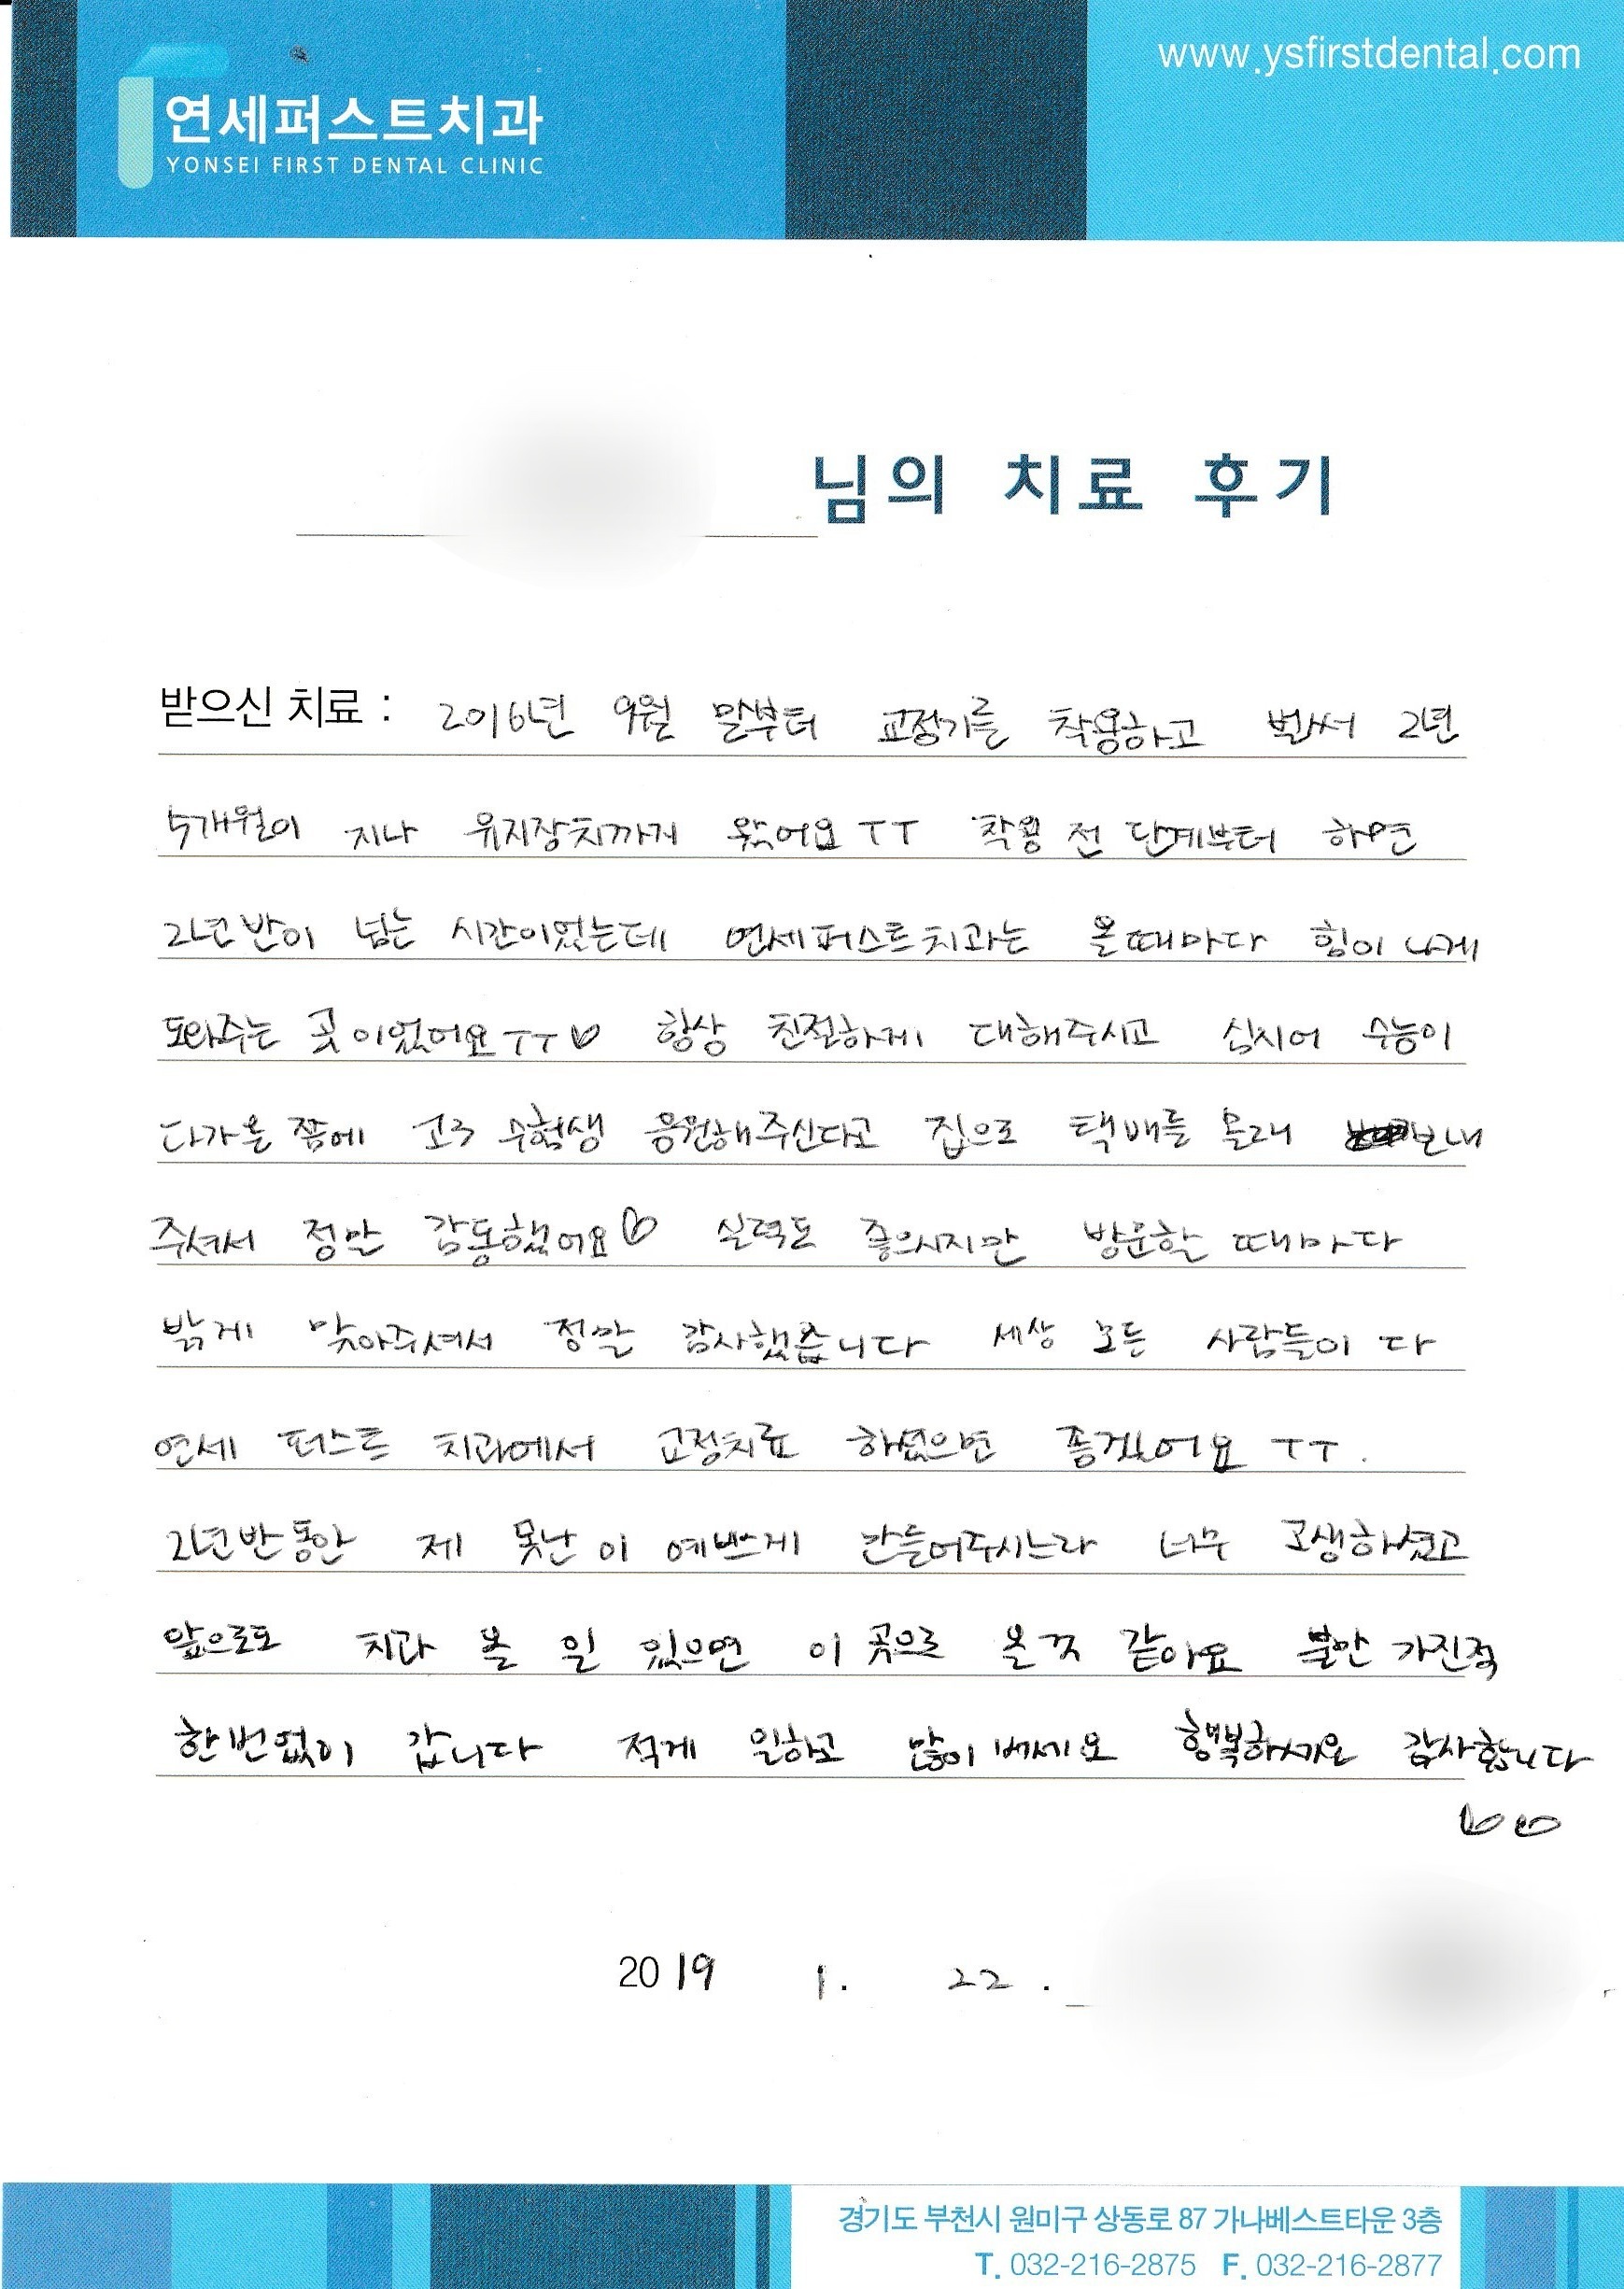 www.ysfirstdental.com
연세퍼스트치과
YONSEI FIRST DENTAL CLINIC
님의 치료 후기
받으신 치료 : 2016년 9월 말부터 교정기를 착용하고 벌써 2년
5개월이 지나 유지장치까지 왔어요 ㅜㅜ 착용 전 단계부터 하면
2년반이 넘는 시간이었는데 연세퍼스트치과는 올때마다 힘이 나게
도와주는 곳이었어요ㅜㅜ♡ 항상 친절하게 대해주시고 심지어 수능이
다가올 쯤에 고3 수험생 응원해주신다고 집으로 택배를 몰래 보내
주셔서 정말 감동했어요♡ 실력도 좋으시지만 방문할 때마다
밝게 맞아주셔서 정말 감사했습니다 세상 모든 사람들이 다
연세 퍼스트 치과에서 교정치료 하셨으면 좋겠어요 ㅜㅜ.
2년반동안 제 못난 이 예쁘게 만들어주시느라 너무 고생하셨고
앞으로도 치과 올 일 있으면 이 곳으로 올 것 같아요 불만 가진적
한번없이 갑니다 적게 일하고 많이 버세요 행복하세요 감사합니다
♡♡
2019 1. 22.
경기도 부천시 원미구 상동로 87 가나베스트타운 3층
T. 032-216-2875 F. 032-216-2877